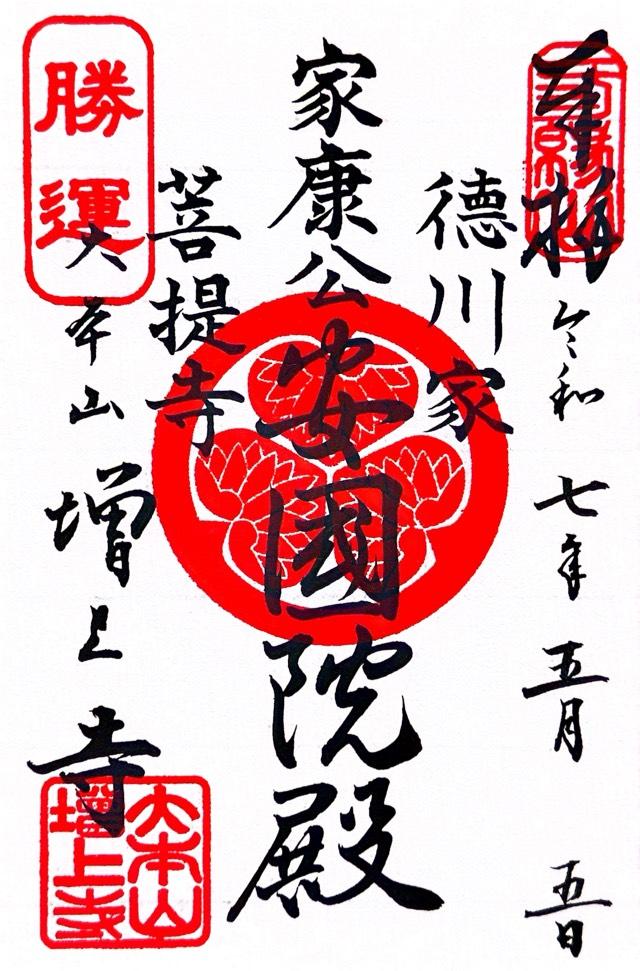 奉拝 令和 七年 五月 五日
德川家
家康公 安國院殿
菩提寺
勝運
大本山 増上寺
大本山
増上寺